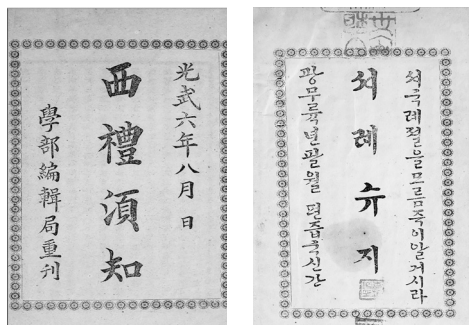 光武六年八月 日
西禮須知
學部編輯局重刊
셔국례졀을모름즉이알거시라
셔례슈지
광무륙년팔월 편즙국신간